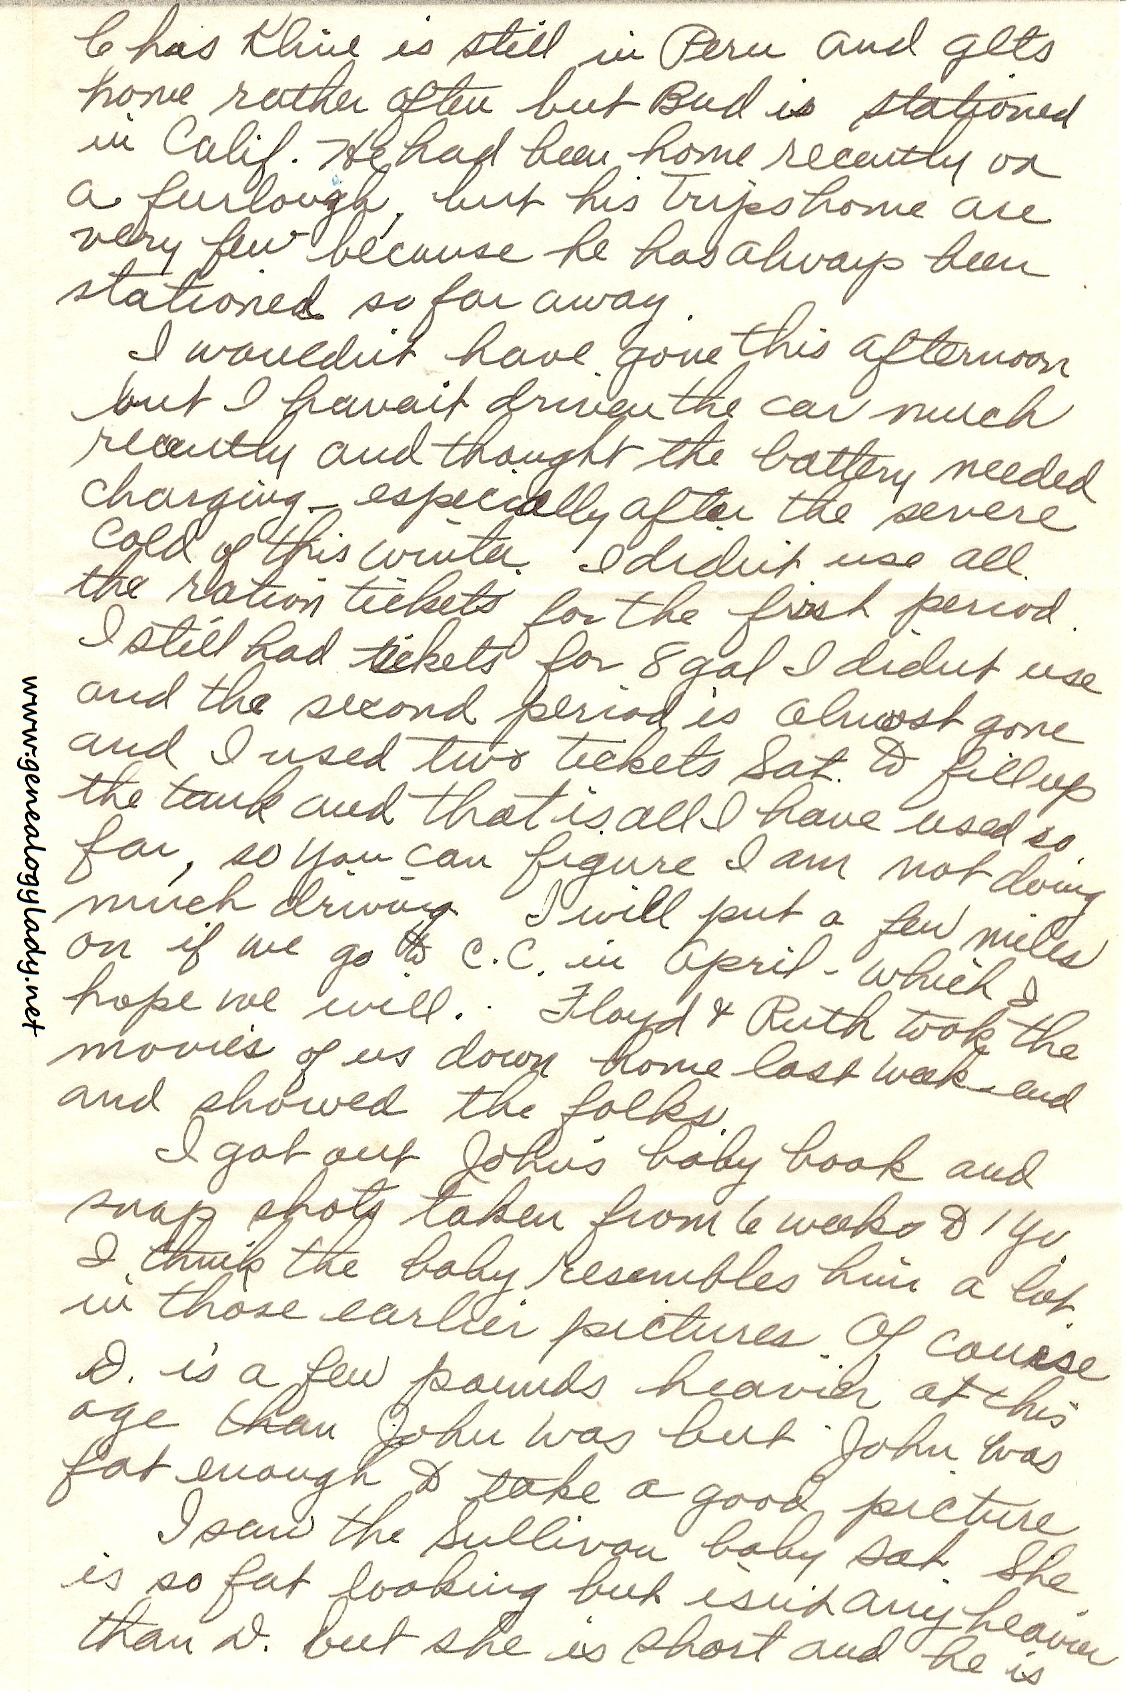 Chas Kline is still in Peru and gets
home rather often but Bud is stationed
in Calif. He had been home recently on
a furlough, but his trips home are
very few because he has always been
stationed so far away.
I wouldn't have gone this afternoon
but I havait driven the car much
recently and thought the battery needed
charging - especially after the severe
cold of this winter. I didn't use all
the ration tickets for the first period.
I still had tickets for 8 gal I didn't use
and the second period is almost gone
and I used two tickets Sat. to fill up
the tank and that is all I have used so
far, so you can figure I am not doing
much driving. I will put a few miles
on if we go to C.C. in April - which I
hope we will. Floyd & Ruth took the
movies of us down home last week-end
and showed the folks.
I got out John's baby book and
snap shots taken from 6 weeks to 1 yr
I think the baby resembles him a lot
in those earlier pictures. Of course
D. is a few pounds heavier at this
age than John was but John was
fat enough to take a good picture
I saw the Sullivan baby Sat. She
is so fat looking but isn't any heavier
than D. but she is short and he is
www.genealogylady.net